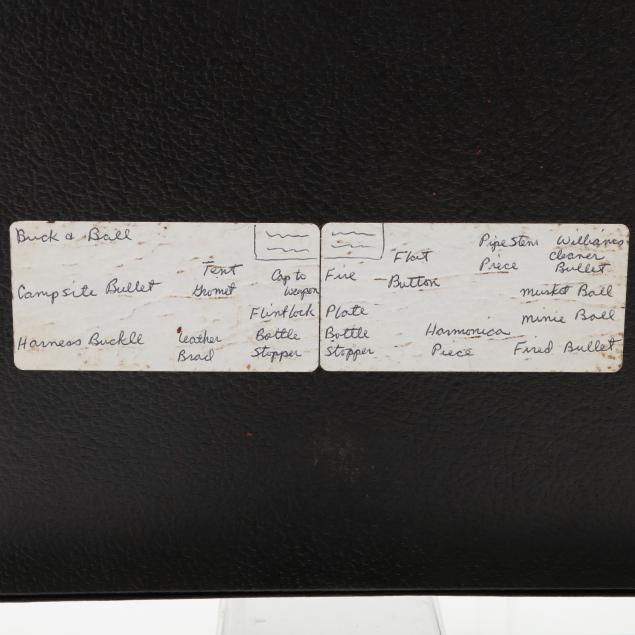 Buck & Ball
Tent
Gromet
Cap to
weapon
Campsite Bullet
Flintlock
Harness Buckle
leather
Brad
Bottle
Stopper
Pipe Stem
Piece
Williams
cleaner
Bullet
Flat
Button
Fire
musket Ball
Plate
minie Ball
Bottle
Stopper
Harmonica
Piece
Fired Bullet